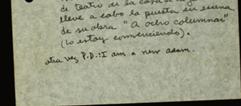 de teatro de la casa de
lleve a cabo la puesta en escena
de su obra "A ocho columnas"
(lo estoy convenciendo).
otra vez P.D.: I am a new adam.